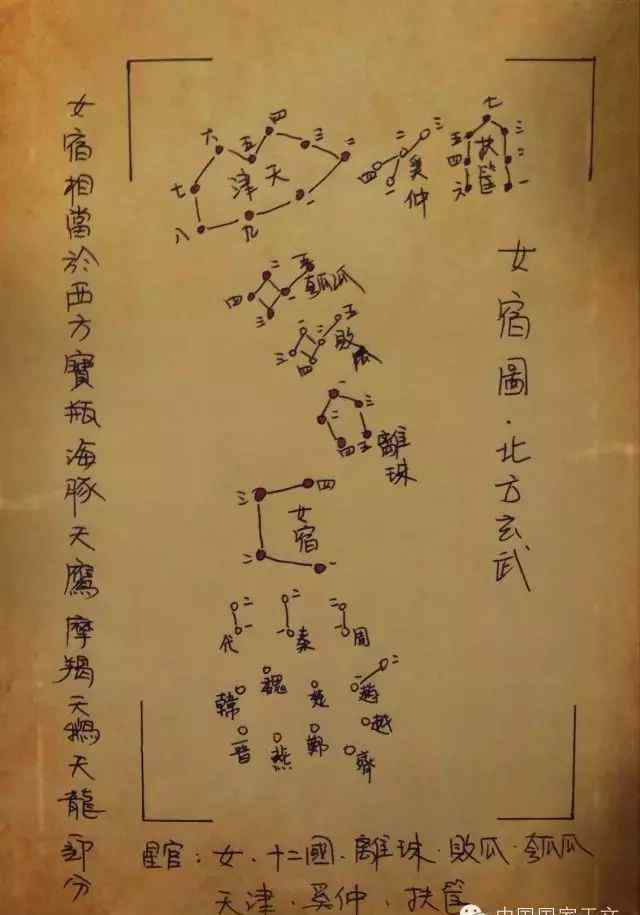 女宿圖·北方玄武
七
五 三
四 二
六 一
扶筐
三
二
四
一
奚仲
四
六 五 三 二
天津
七 一
八 九
五
二
四 一
三
瓠瓜
一 五
三
四
敗瓜
一
二 三
四 五
離珠
三 四
女宿
二 一
二 二 二
一 一 一
代 秦 周
二
一
韓 魏 楚 趙
越
晋 燕 鄭 齊
女宿相當於西方寶瓶海豚天鷹摩羯天鵝天龍部分
星官：女·十二國·離珠·敗瓜·瓠瓜
天津·奚仲·扶筐
中国国家天文